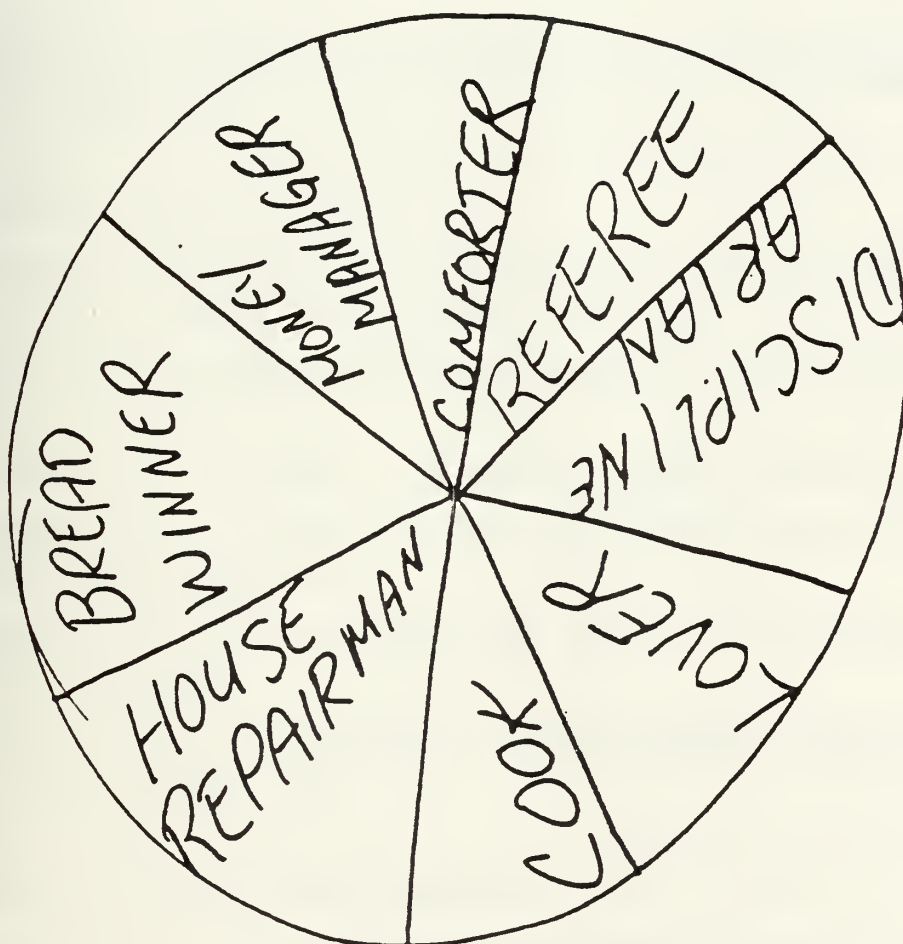 BREAD
WINNER
MONEY
MANAGER
COMFORTER
REFEREE
DISCIPLINE
ARIAN
LOVER
COOK
HOUSE
REPAIRMAN